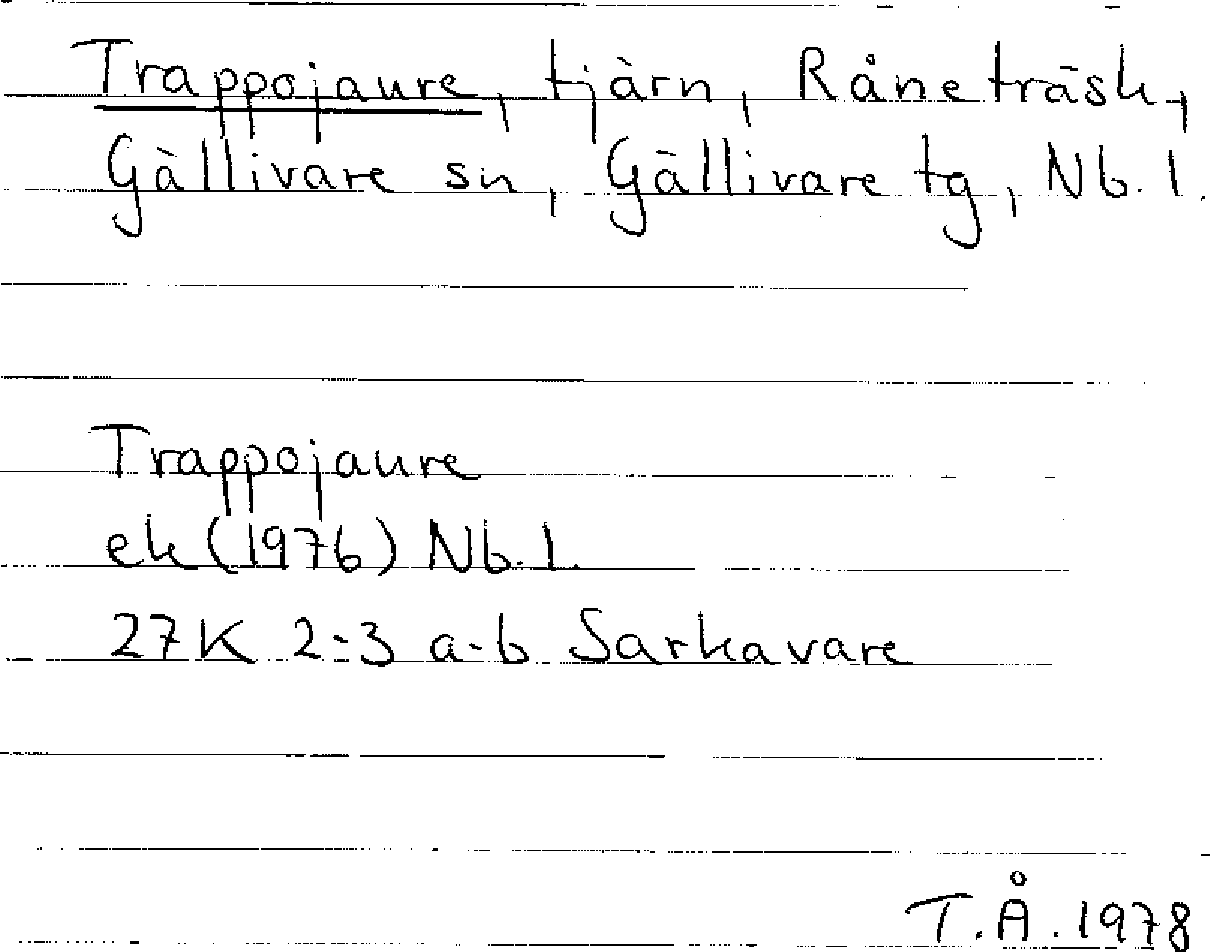 Trappojaure, tjärn, Råneträsk,
Gällivare sn, Gällivare tg, Nb. l.
Trappojaure
ek (1976) Nb. l.
27K 2-3 a-b Sarkavare
T.Å. 1978